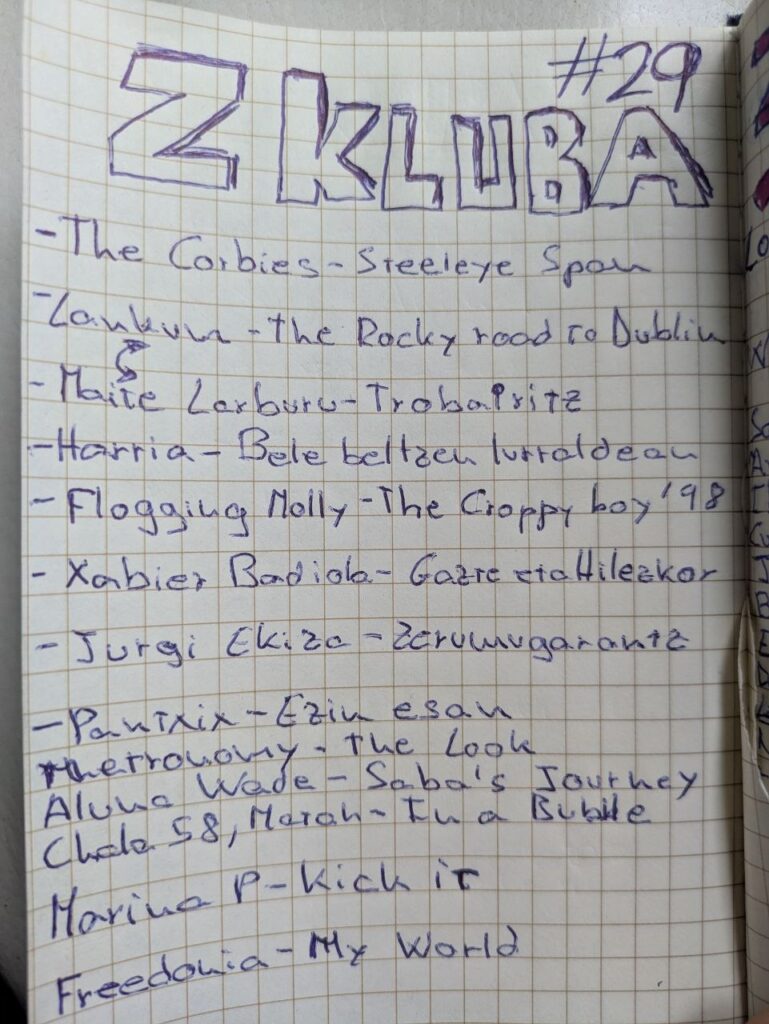 #29
Z KLUBA
- The Corbies - Steeleye Span
- Lankum - The Rocky road to Dublin
- Maite Larburu - Trobairitz
- Harria - Bele beltzen lurraldean
- Flogging Molly - The Croppy boy '98
- Xabier Badiola - Gazte eta Hilezkor
- Jurgi Ekiza - Zerumugarantz
- Pantxix - Ezin esan
Metronomy - The Look
Aluna Wade - Saba's Journey
Chala 58, Marah - In a Bubble
Marina P - Kick it
Freedonia - My World